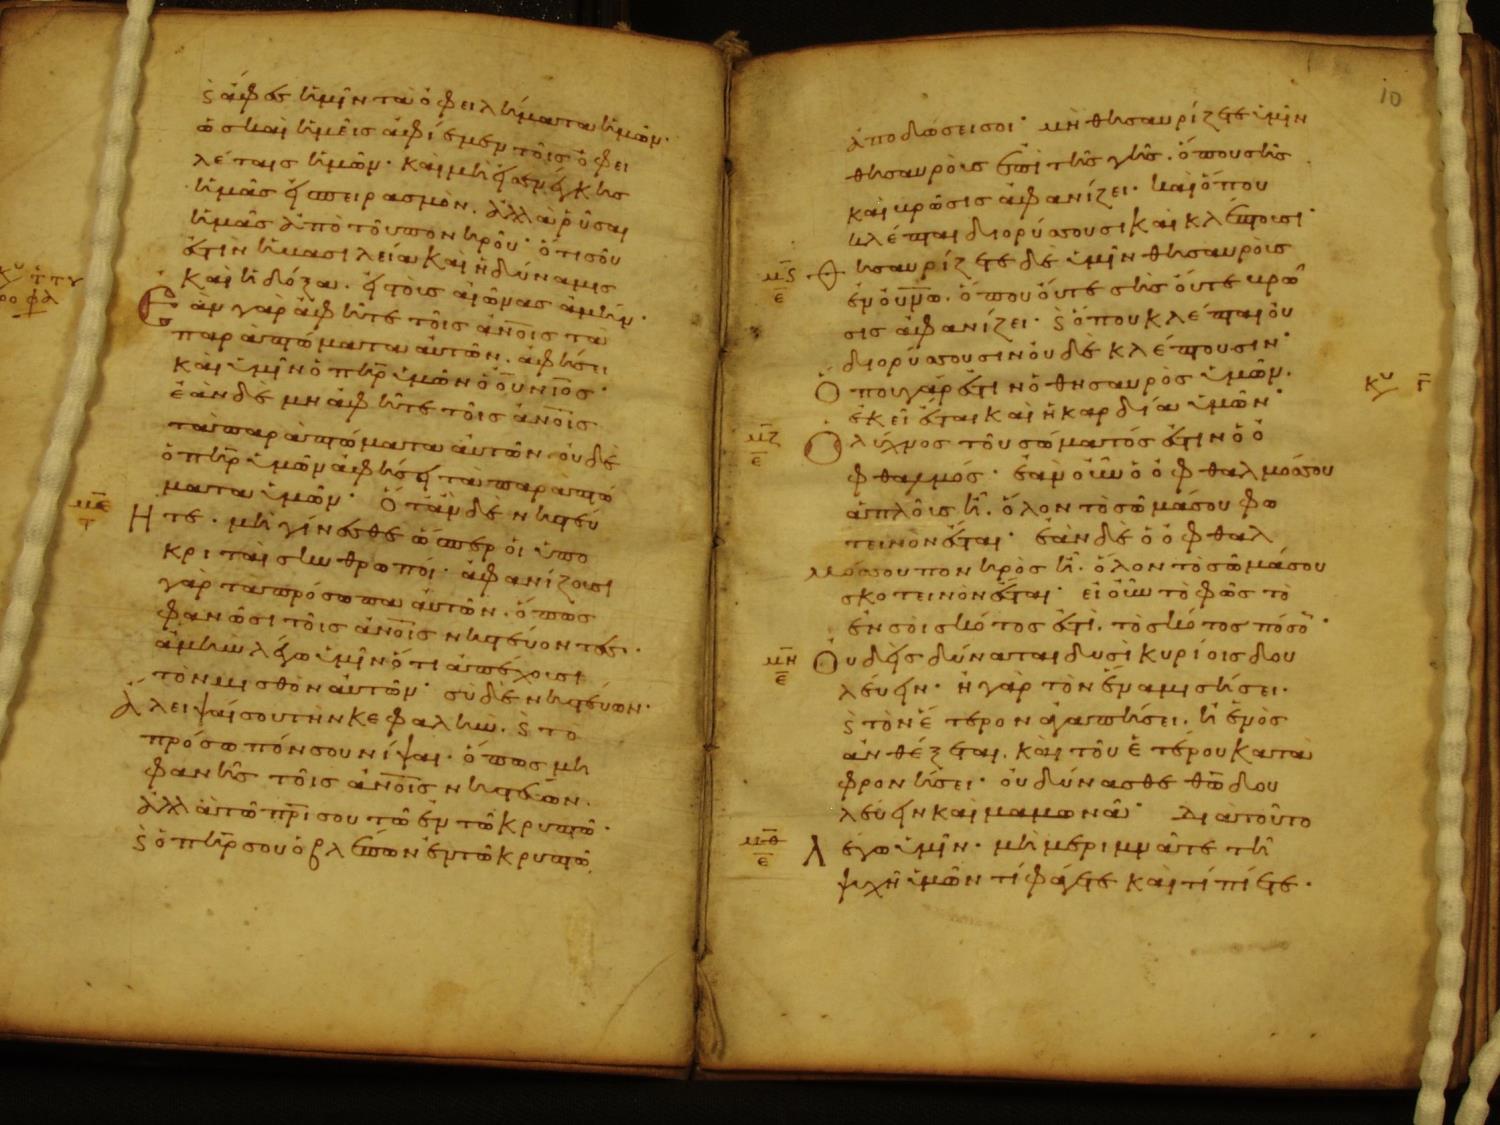 κ(αὶ) ἄφες ἡμῖν τὰ ὀφειλήματα ἡμῶν·
ὡς καὶ ἡμεῖς ἀφίεμεν τοῖς ὀφει
λέταις ἡμῶν· καὶ μὴ εἰσενέγκης
ἡμᾶς εἰς πειρασμόν. ἀλλὰ ῥῦσαι
ἡμᾶς ἀπὸ τοῦ πονηροῦ· ὅτι σοῦ
ἐστὶν ἡ βασιλεία καὶ ἡ δύναμις
καὶ ἡ δόξα. εἰς τοὺς αἰῶνας ἀμήν·
Ἐὰν γὰρ ἀφῆτε τοῖς ἀν̅ο̅ις τὰ
παραπτώματα αὐτῶν. ἀφήσει
καὶ ὑμῖν ὁ π̅η̅ρ ὑμῶν ὁ ο̅υ̅νιος·
ἐὰν δὲ μὴ ἀφῆτε τοῖς ἀν̅ο̅ις
τὰ παραπτώματα αὐτῶν. οὐδὲ
ὁ π̅η̅ρ ὑμῶν ἀφήσει τὰ παραπτώ
ματα ὑμῶν· Ὅταν δὲ νηστεύ
μ̅ε̅ ητε. μὴ γίνεσθε ὥσπερ οἱ ὑπο
κριταὶ σκυθρωποί· ἀφανίζουσι
γὰρ τὰ πρόσωπα αὐτῶν. ὅπως
φανῶσι τοῖς ἀν̅ο̅ις νηστεύοντες·
ἀμὴν λέγω ὑμῖν ὅτι ἀπέχουσι
τὸν μισθὸν αὐτῶν· σὺ δὲ νηστεύων·
ἄλειψαί σου τὴν κεφαλήν. κ(αὶ) τὸ
πρόσωπόν σου νίψαι· ὅπως μὴ
φανῆς τοῖς ἀν̅ο̅ις νηστεύων.
ἀλλὰ τῶ π̅ρ̅ι σου τῶ ἐν τῶ κρυπτῶ·
κ(αὶ) ὁ π̅η̅ρ σου ὁ βλέπων ἐν τῶ κρυπτῶ
10
ἀποδώσει σοι· μὴ θησαυρίζετε ὑμῖν
θησαυροὺς ἐπὶ τῆς γῆς. ὅπου σὴς
καὶ βρῶσις ἀφανίζει· καὶ ὅπου
κλέπται διορύσσουσι καὶ κλέπτουσι·
μ̅ς̅ ε̅ Θησαυρίζετε δὲ ὑμῖν θησαυροὺς
ἐν ο̅υ̅ν̅ω. ὅπου οὔτε σὴς οὔτε βρῶ
σις ἀφανίζει· κ(αὶ) ὅπου κλέπται οὐ
διορύσσουσιν οὐδὲ κλέπτουσιν·
Ὅπου γάρ ἐστιν ὁ θησαυρὸς ὑμῶν.
ἐκεῖ ἔσται καὶ ἡ καρδία ὑμῶν·
μ̅ζ̅ ε̅ Ὁ λύχνος τοῦ σώματός ἐστιν ὁ ὀ
φθαλμός· ἐὰν οὖν ὁ ὀφθαλμός σου
ἁπλοῦς ἦ. ὅλον τὸ σῶμά σου φω
τεινὸν ἔσται· ἐὰν δὲ ὁ ὀφθαλ
μός σου πονηρὸς ἦ. ὅλον τὸ σῶμά σου
σκοτεινὸν ἔσται· εἰ οὖν τὸ φῶς τὸ
ἐν σοὶ σκότος ἐστί. τὸ σκότος πόσον·
μ̅η̅ ε̅ Οὐδεὶς δύναται δυσὶ κυρίοις δου
λεύειν· ἢ γὰρ τὸν ἕνα μισήσει·
κ(αὶ) τὸν ἕτερον ἀγαπήσει. ἢ ἑνὸς
ἀνθέξεται. καὶ τοῦ ἑτέρου κατα
φρονήσει· οὐ δύνασθε θ̅ω̅ δου
λεύειν καὶ μαμωνᾶ· Διὰ τοῦτο
μ̅θ̅ ε̅ λέγω ὑμῖν· μὴ μεριμνᾶτε τῆ
ψυχῆ ὑμῶν τί φάγετε καὶ τί πίετε·